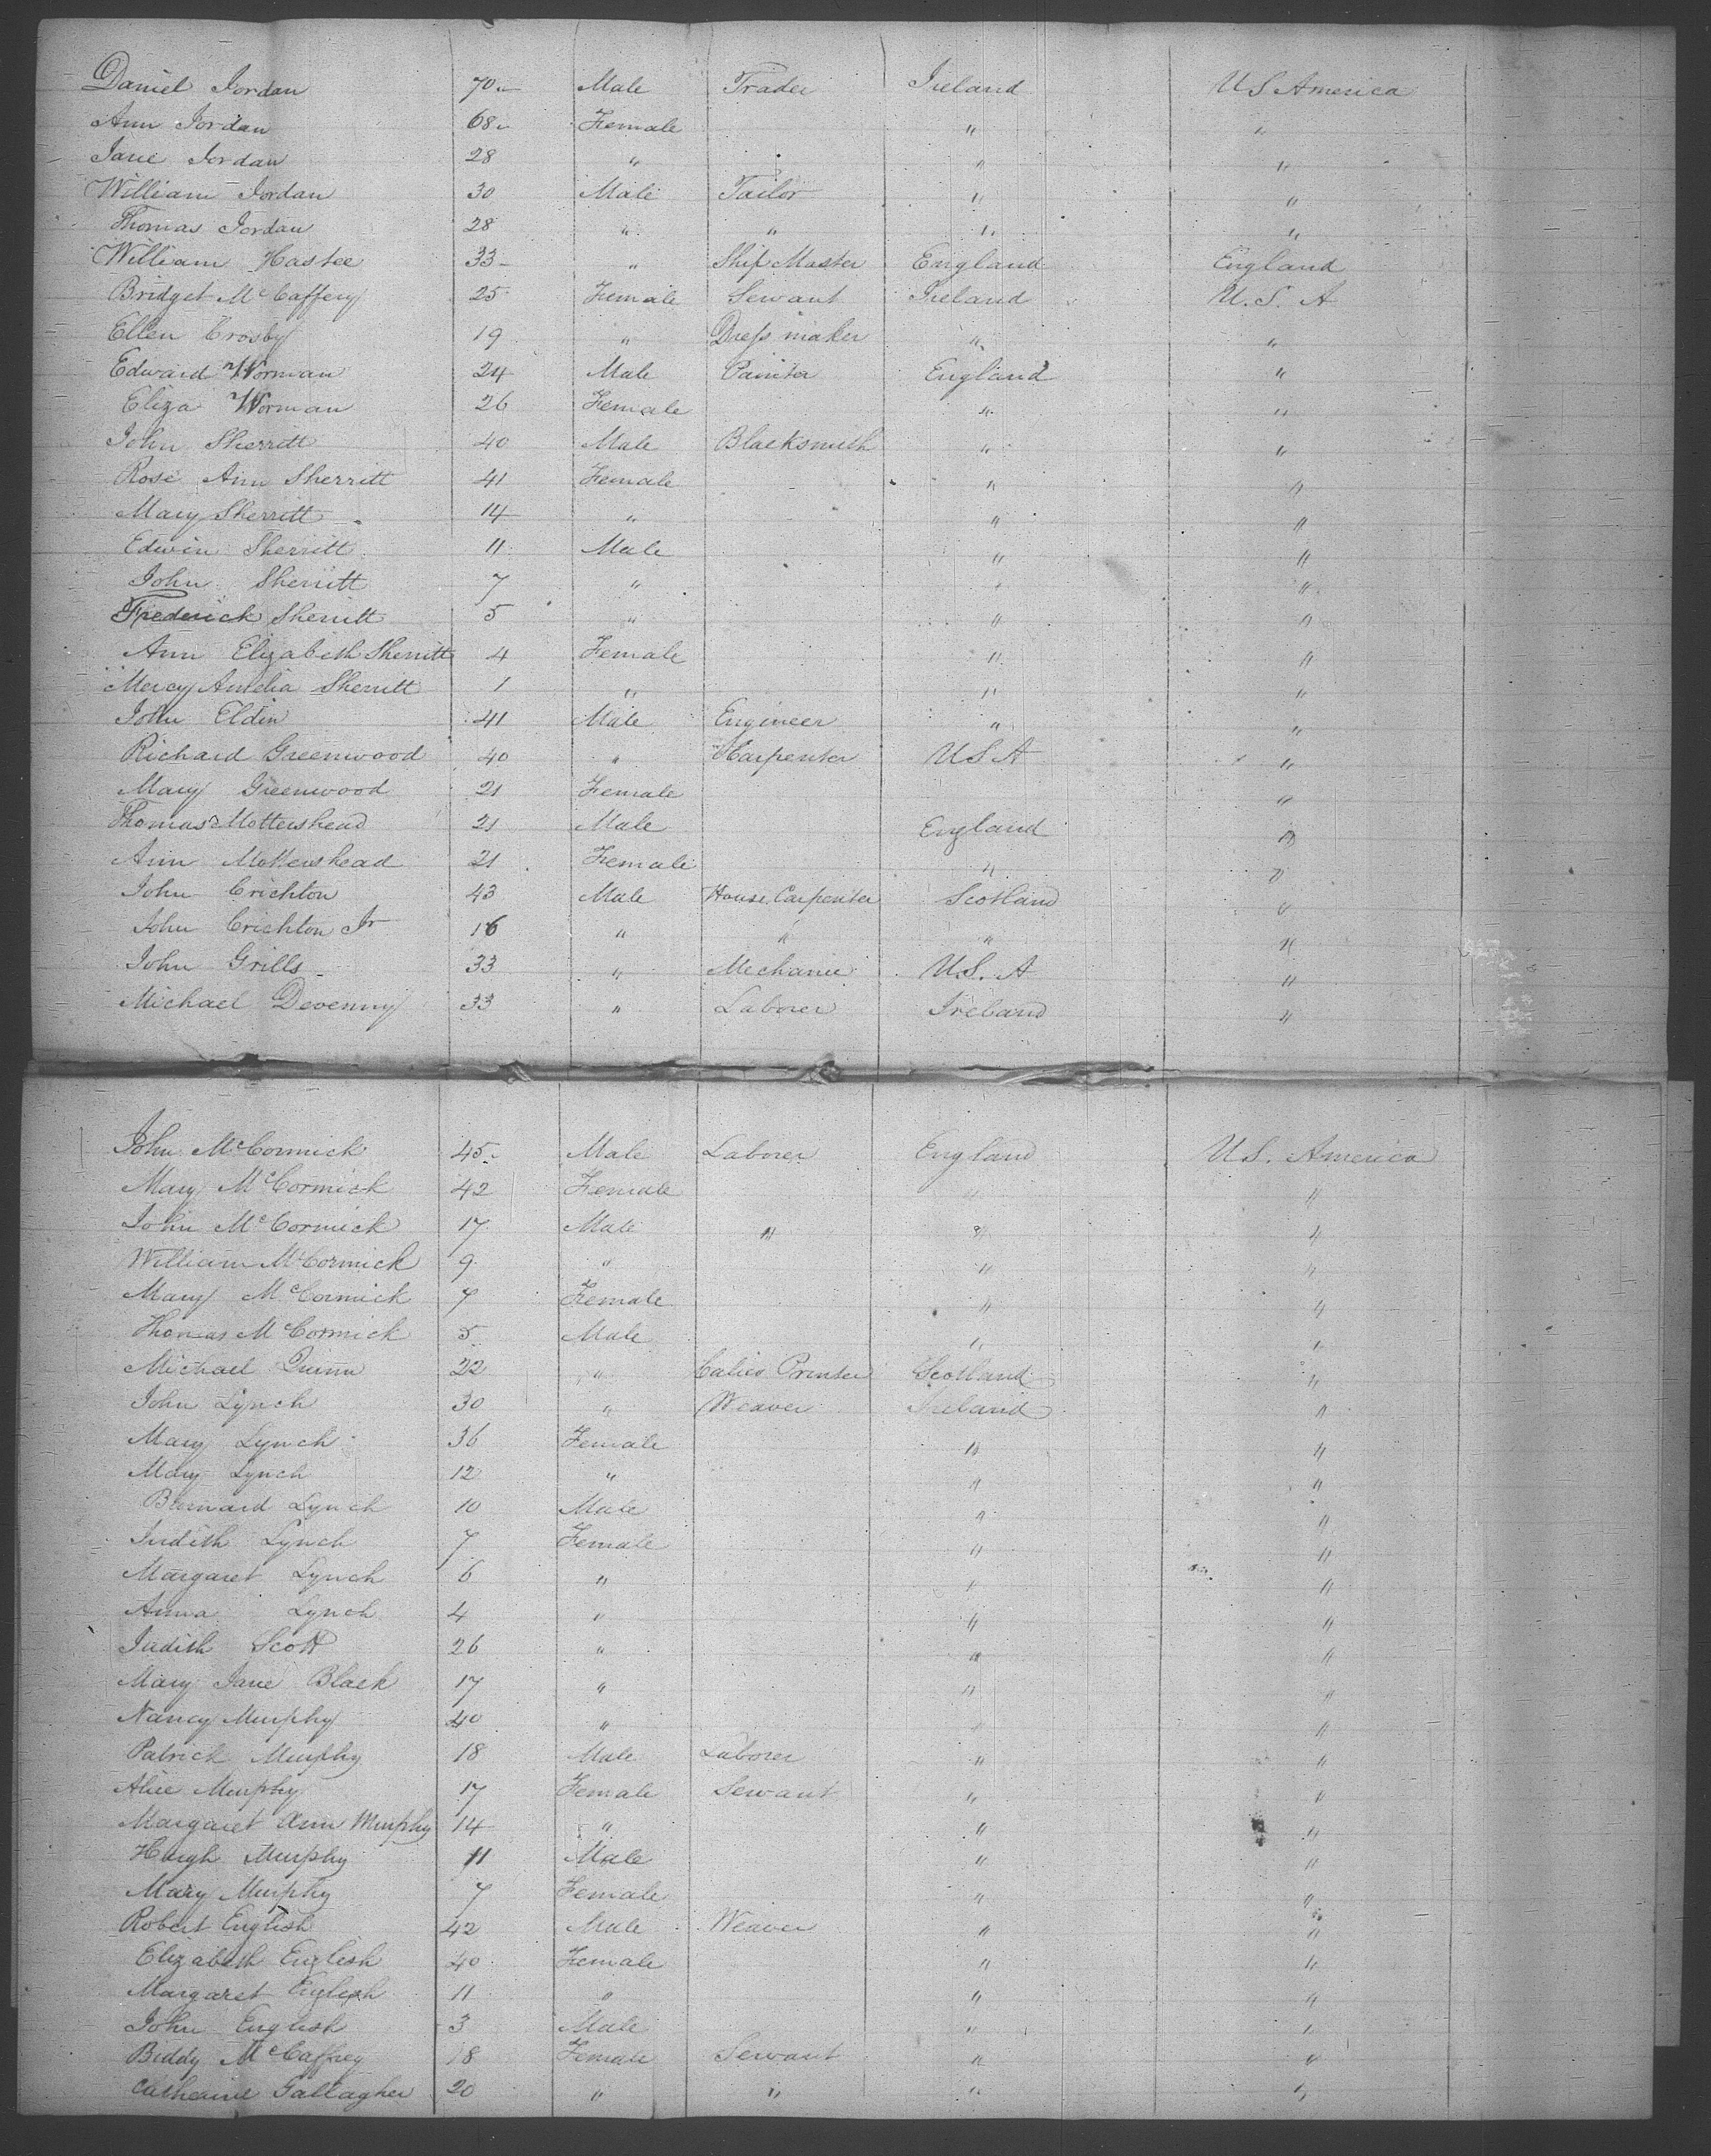 Daniel Jordan 70 Male Trader Ireland US America
Ann Jordan 68 Female " "
Jane Jordan 28 " " "
William Jordan 30 Male Tailor " "
Thomas Jordan 28 " " " "
William Hastee 33 " Ship Master England England
Bridget McCaffery 25 Female Servant Ireland U. S. A
Ellen Crosby 19 " Dress maker " "
Edward Worman 24 Male Painter England "
Eliza Worman 26 Female " "
John Sherritt 40 Male Blacksmith " "
Rose Ann Sherritt 41 Female " "
Mary Sherritt 14 " " "
Edwin Sherritt 11 Male " "
John Sherritt 7 " " "
Frederick Sherritt 5 " " "
Ann Elizabeth Sherritt 4 Female " "
Mercy Amelia Sherritt 1 " " "
John Eldin 41 Male Engineer " "
Richard Greenwood 40 " Carpenter U S A "
Mary Greenwood 21 Female "
Thomas Mottershead 21 Male England "
Ann Mottershead 21 Female " "
John Crichton 43 Male House Carpenter Scotland "
John Crichton Jr 16 " " " "
John Grills 33 " Mechanic U.S. A "
Michael Devenny 33 " Laborer Ireland "
John McCormick 45 Male Laborer England U.S. America
Mary McCormick 42 Female " "
John McCormick 17 Male " " "
William McCormick 9 " " "
Mary McCormick 7 Female " "
Thomas McCormick 5 Male " "
Michael Quinn 22 " Calico Printer Scotland "
John Lynch 30 " Weaver Ireland "
Mary Lynch 36 Female " "
Mary Lynch 12 " " "
Bernard Lynch 10 Male " "
Judith Lynch 7 Female " "
Margaret Lynch 6 " " "
Anna Lynch 4 " " "
Judith Scott 26 " " "
Mary Jane Black 17 " " "
Nancy Murphy 40 " " "
Patrick Murphy 18 Male Laborer " "
Alice Murphy 17 Female Servant " "
Margaret Ann Murphy 14 " " "
Hugh Murphy 11 Male " "
Mary Murphy 7 Female " "
Robert English 42 Male Weaver " "
Elizabeth English 40 Female " "
Margaret English 11 " " "
John English 3 Male " "
Biddy McCaffrey 18 Female Servant " "
Catharine Gallagher 20 " " " "